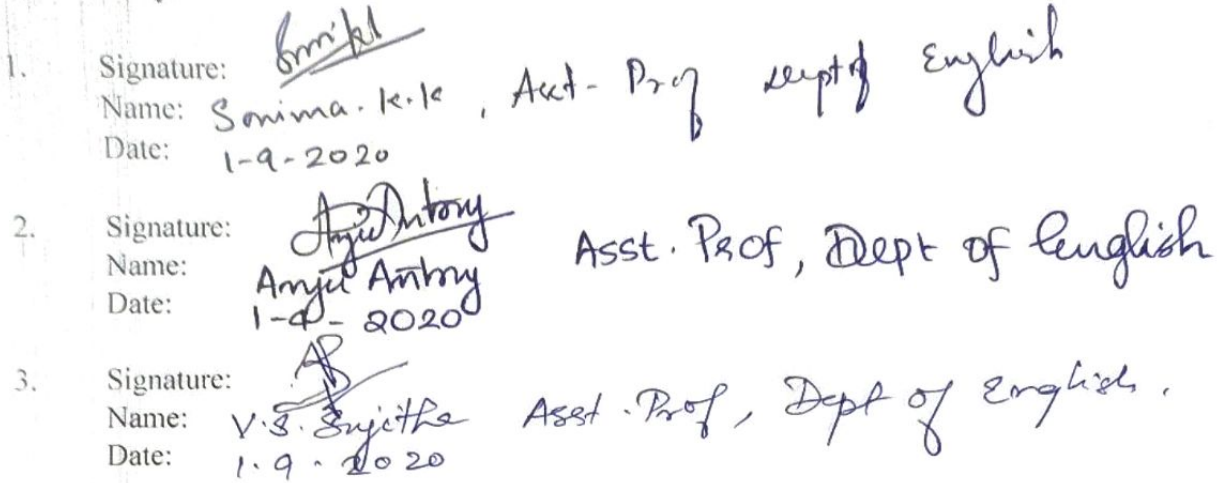 1. Signature:
Name: Sonima.K.K, Asst- Prof Dept of English
Date: 1-9-2020
2. Signature: Anju Antony
Name: Anju Antony Asst. Prof, Dept of English
Date: 1-9-2020
3. Signature:
Name: V.S. Sujitha Asst. Prof, Dept of English.
Date: 1.9.2020